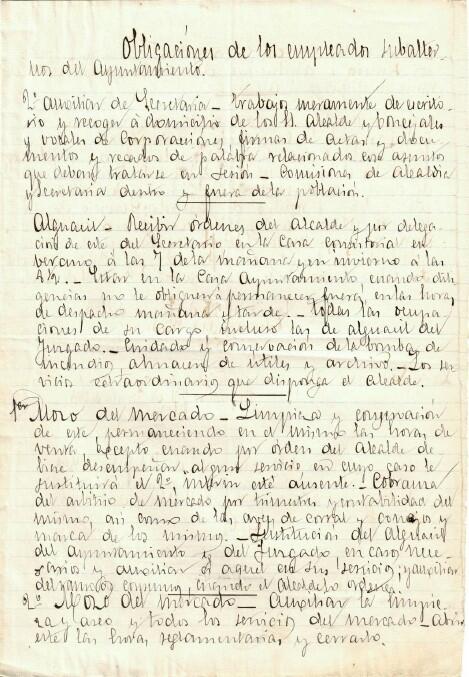 Obligaciones de los empleados subalter-
nos del Ayuntamiento.
2º Auxiliar de Secretaría — Trabajos meramente de escrito-
rio y recoger á domicilio de los S. Alcalde y Concejales
y vocales de Corporaciones, firmas de actas y docu-
mentos y recados de palabra relacionados con asuntos
que deban tratarse en sesión — Comisiones de Alcaldía
y Secretaría dentro y fuera de la población.
Alguacil — Recibir órdenes del Alcalde y por delega-
ción de este del Secretario en la Casa Consistorial en
verano, á las 7 de la mañana y en invierno á las
8½. — Estar en la Casa Ayuntamiento, cuando dili-
gencias no le obliguen á permanecer fuera, en las horas
de despacho mañana y tarde. — Todas las ocupa-
ciones de su cargo, incluso las de alguacil del
Juzgado. — Cuidado y conservación de la bomba de
incendios, almacén de útiles y archivo. — Los ser-
vicios extraordinarios que disponga el Alcalde.
Mozo del mercado — Limpieza y conservación
de este, permaneciendo en el mismo las horas de
venta, excepto cuando por orden del Alcalde de-
biese desempeñar algún servicio en cuyo caso le
sustituirá el 2º, mientras esté ausente. — Cobranza
del arbitrio de mercado por trimestres y contabilidad del
mismo, así como de las aves de corral y conejos y
marca de los mismos. — Sustitución del Alguacil
del Ayuntamiento y del Juzgado en caso nece-
sarios y auxiliar á aquel en sus servicios, y auxiliar
del ramo de consumos, cuando el Alcalde lo ordene.
2º Mozo del mercado — Auxiliar la limpie-
za y aseo y todos los servicios del mercado — Abrir
este las horas reglamentarias y cerrarlo.